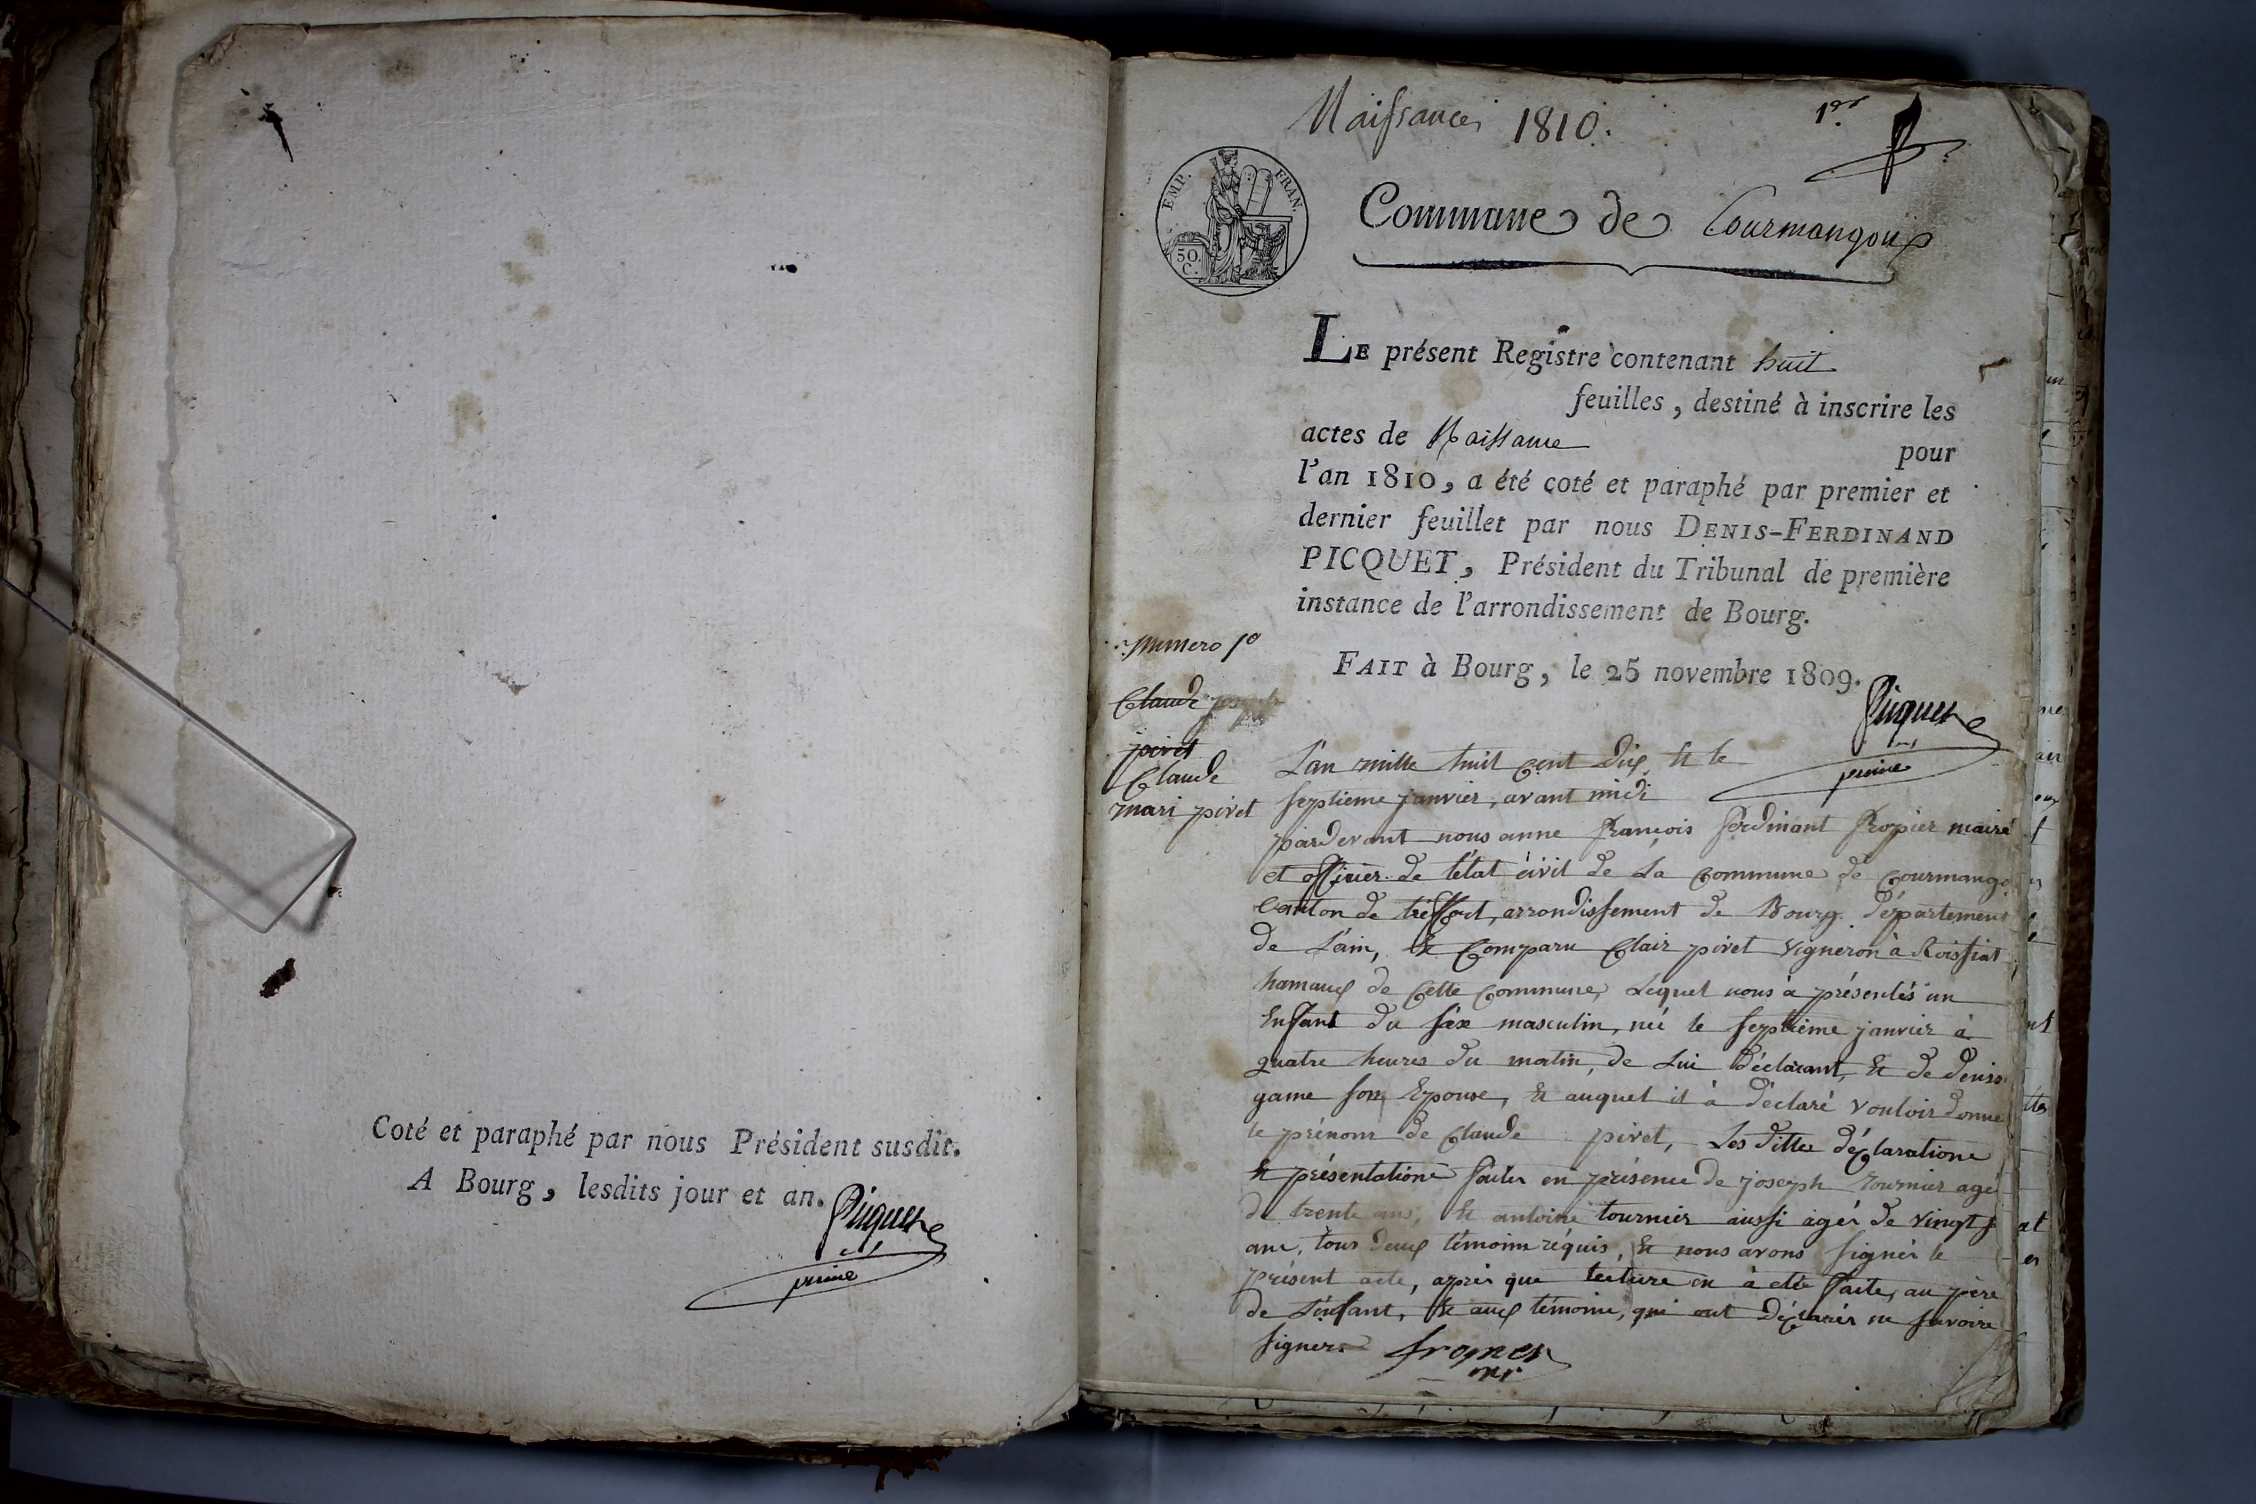 Coté et paraphé par nous Président susdit.
A Bourg, lesdits jour et an.
Picquet
Naissances 1810.
1er
EMP. FRAN.
50.
C.
Commune de Courmangoux
LE présent Registre contenant huit
feuilles, destiné à inscrire les
actes de Naissance pour
l'an 1810, a été coté et paraphé par premier et
dernier feuillet par nous DENIS-FERDINAND
PICQUET, Président du Tribunal de première
instance de l'arrondissement de Bourg.
FAIT à Bourg, le 25 novembre 1809.
Picquet
Numero 1o
Claude joseph
pivet
Claude
mari pivet
L'an mille huit cent dix, & le
septieme janvier, avant midi
pardevant nous anne françois ferdinant frogier maire
et officier de l'état civil de La commune de courmango
Canton de treffort, arrondissement de Bourg département
de L'ain, Est Comparu Clair pivet vigneron à Roissiat
hamaux de Cette Commune, Lequel nous à présentés un
Enfant du sèxe masculin, née le septième janvier à
quatre heures du matin, de Lui Déclarant, & de denise
game son Epouse, & auquel il à déclaré vouloir donne
le prénom de Claude pivet, Les dittes déclaratione
& présentatione faites en présence de joseph tournier agé
de trente ans, & antoine tournier aussi agés de vingt
ans, tous deux témoins réquis, & nous avons signés le
présent acte, après que lecture en à été faite, au père
de L'énfant, & aux témoins, qui ont Déclarés ne savoire
signer.